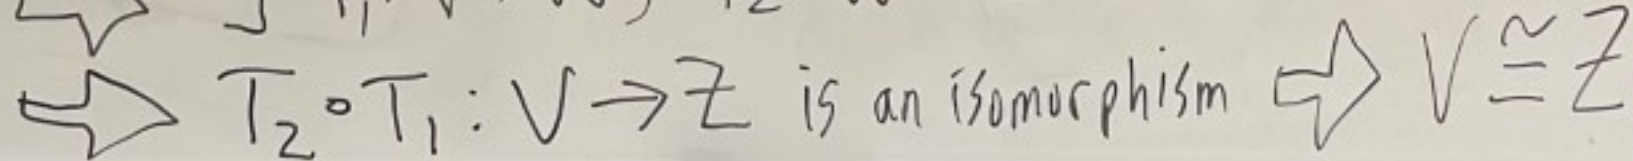 ⇒ T₂∘T₁: V → Z is an isomorphism ⇒ V ≅ Z